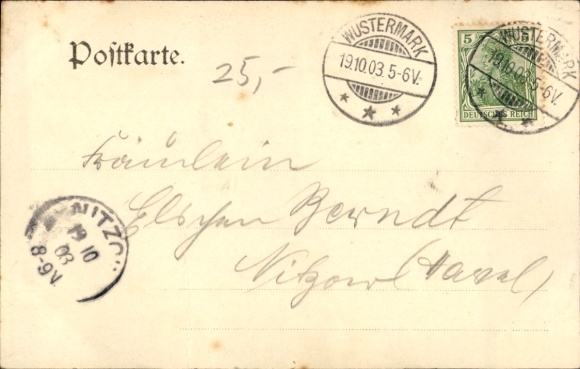 Postkarte.
25,-
WUSTERMARK
19.10.03.5-6V.
5 5
DEUTSCHES REICH
WUSTERMARK
19.10.03.5-6V.
Fräulein
Elschen Berndt
Nitzow (Havel)
NITZO
19 10
03
8-9V.